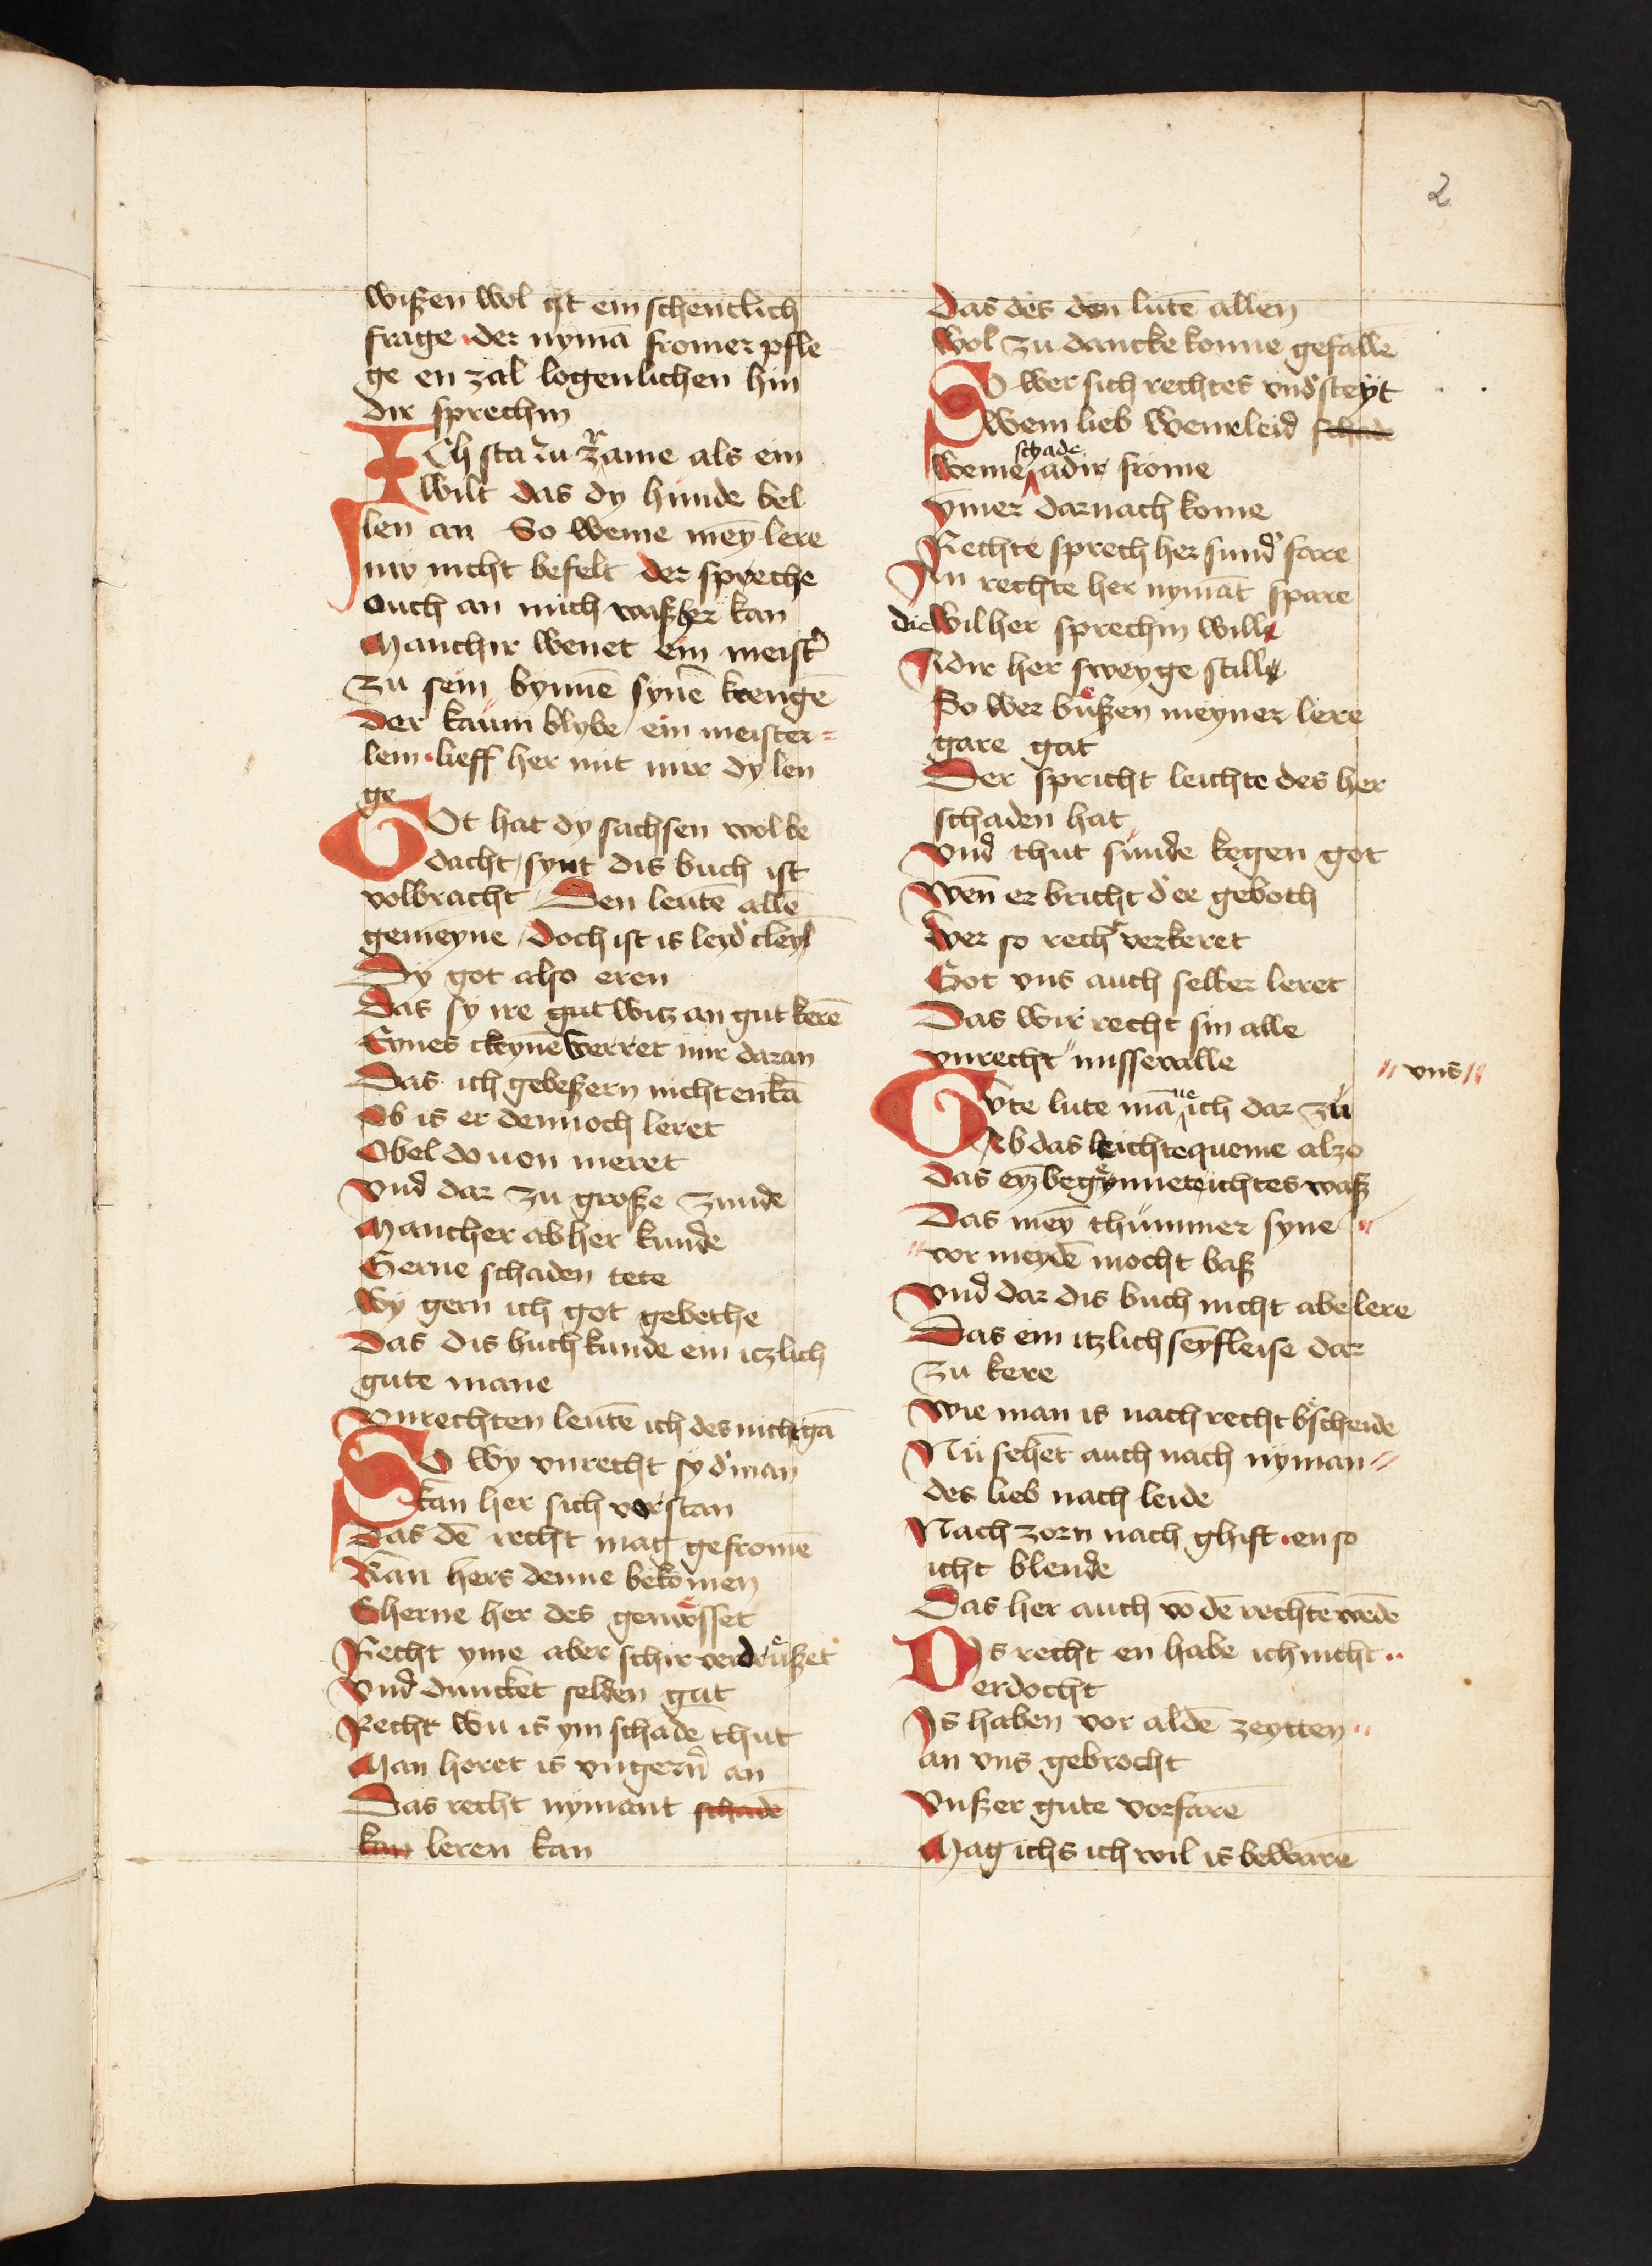 2
wißen wol ist ein schentlich
frage · der nymā fromer pfle
ge en zal logenlichen hin
dir sprechin
Ich sta zu rame als ein
wilt das dy hunde bel
len an So weme mēy lere
nir nicht befelt der spreche
ouch an mich waß her kan
Manchir wenet ein meist'
zu sein bynnē synē krengē
der kaum blybe ein meister=
lein · lieff her mit mir dy len
ge
Got hat dy sachsen wol be
dacht / synt dis buch ist
volbracht Den leutē allē
gemeyne / doch ist is leyd' cleyn
Dy got also eren
Das sy ire gut witz an gut kerē
Eynes ckeynē werret mir daran
Das ich gebeßern nicht enkā
Ob is er dennoch leret
Obel do uon meret
Vnd dar zu große zunde
Mancher ab her kunde
Gerne schaden tete
Wy gern ich got gebethe
Das dis buch kunde ein itzlich
gute mane
Vnrechten leutē ich des nicht gā
So wy vnrecht sy d' man
kan her sich vorstan
Das dē recht mag gefromē
Kan hers denne bekomen
Gherne her des genůsset
Recht yme aber schir verdrůßet
Vnd duncket selden gut
Recht wu is ym schade thut
Man horet is vngern' an
Das recht nymant schade
kan leren kan
Das des den lutē allen
Wol zu dancke konne gefallē
So wer sich rechtes vnd'steyt
Wem lieb weme leid schade
Weme schade adir frome
ymer darnach kome
Rechte sprech her sund' fare
An rechte her nymāt spare
die wil her sprechin wille
Adir her sweyge stille
So wer bůßen meyner lere
gare gat
Der spricht leichte des her
schaden hat
Vnd thut sunde kegen got
Wen er bricht d' ee geboth
Wer so recht verkeret
Got vns auch selber leret
Das wir recht sin alle
vnrecht " missevalle
" vns "
Gvte lute mā ne ich dar zu
Ab das leichte queme alzo
Das eyz begynnet ichtes waß
Das mēy thummer syne "
" vor meydē mocht baß
Vnd dar dis buch nicht abe lere
Das ein itzlich sēy fleise dar
zu kere
Wie man is nach recht bescheide
Nu sehet auch nach nyman "
des lieb nach leide
Nach zorn nach ghift · en so
icht blende
Das her auch vō dē rechtē wēde
Dis recht en habe ich nicht ··
erdocht
Is haben vor aldē zeytten "
an vns gebrocht
Vnßer gute vorfare
Mag ichs ich wil is beware